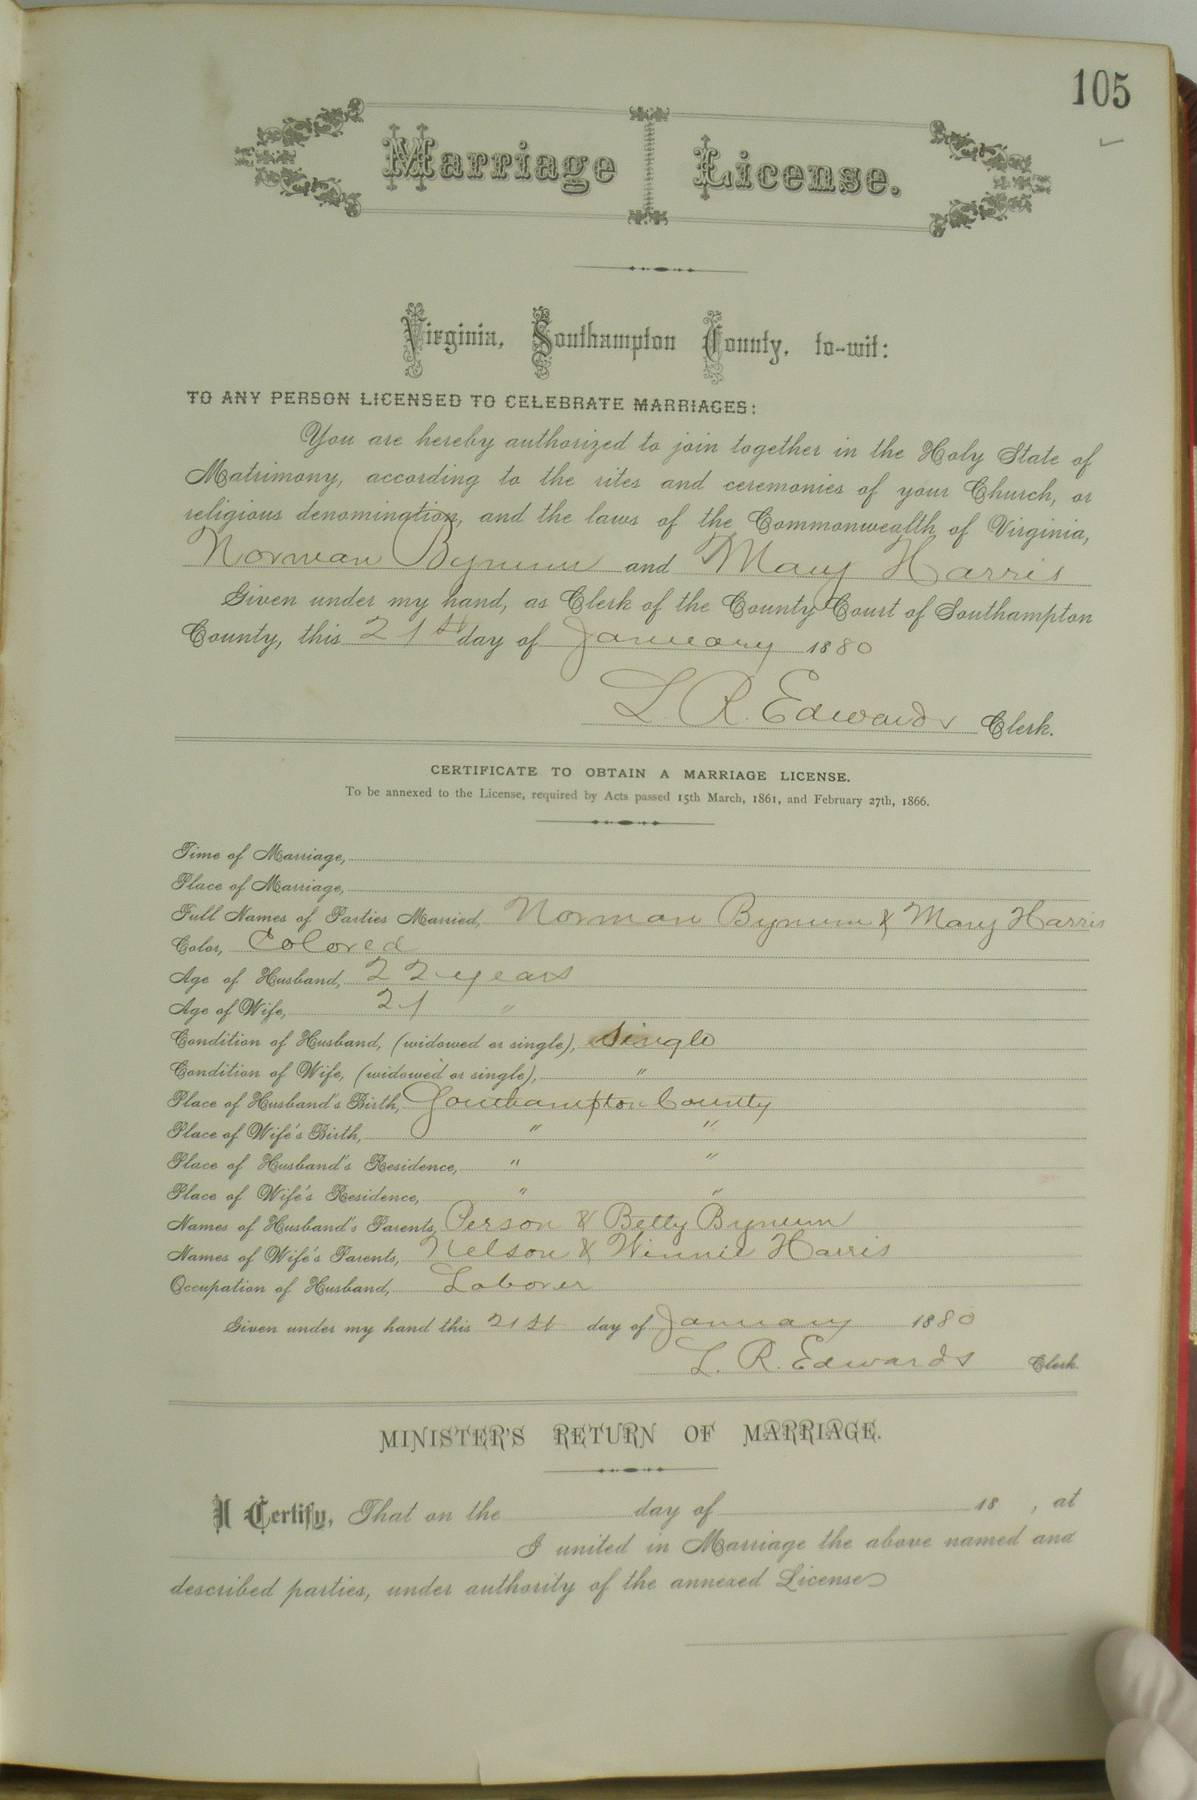 105
Marriage License.
Virginia, Southampton County, to-wit:
TO ANY PERSON LICENSED TO CELEBRATE MARRIAGES:
You are hereby authorized to join together in the Holy State of
Matrimony, according to the rites and ceremonies of your Church, or
religious denomination, and the laws of the Commonwealth of Virginia,
Norman Bynum and Mary Harris
Given under my hand, as Clerk of the County Court of Southampton
County, this 21st day of January 1880
L. R. Edwards Clerk.
CERTIFICATE TO OBTAIN A MARRIAGE LICENSE.
To be annexed to the License, required by Acts passed 15th March, 1861, and February 27th, 1866.
Time of Marriage,
Place of Marriage,
Full Names of Parties Married, Norman Bynum & Mary Harris
Color, Colored
Age of Husband, 22 years
Age of Wife, 21 "
Condition of Husband, (widowed or single), Single
Condition of Wife, (widowed or single), "
Place of Husband's Birth, Southampton County
Place of Wife's Birth, " "
Place of Husband's Residence, " "
Place of Wife's Residence, " "
Names of Husband's Parents, Person & Betty Bynum
Names of Wife's Parents, Nelson & Winnie Harris
Occupation of Husband, Laborer
Given under my hand this 21st day of January 1880
L. R. Edwards Clerk.
MINISTER'S RETURN OF MARRIAGE.
I Certify, That on the day of 18 , at
I united in Marriage the above named and
described parties, under authority of the annexed License